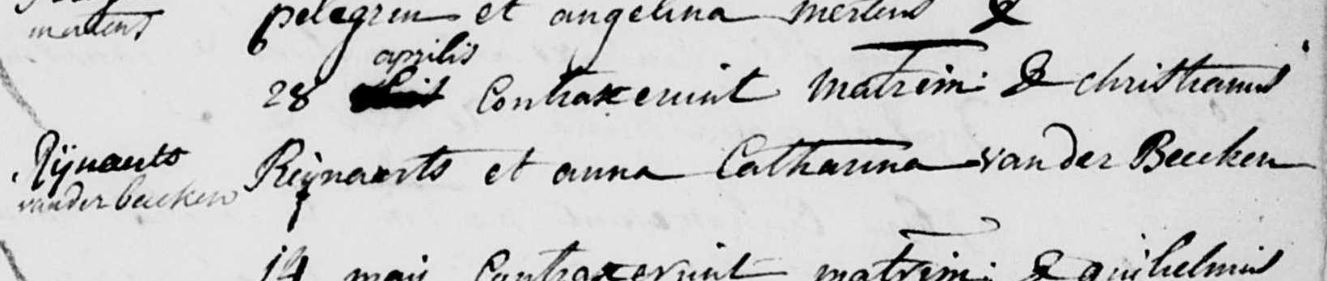 mertens
pelegrin et angelina mertens &
aprilis
28 Contraxerunt Matrim: & christianus
Rÿnaerts
vander beecken
Reÿnaerts et anna Catharina van der Beecken
14 maii Contraxerunt matrim: & guilielmus